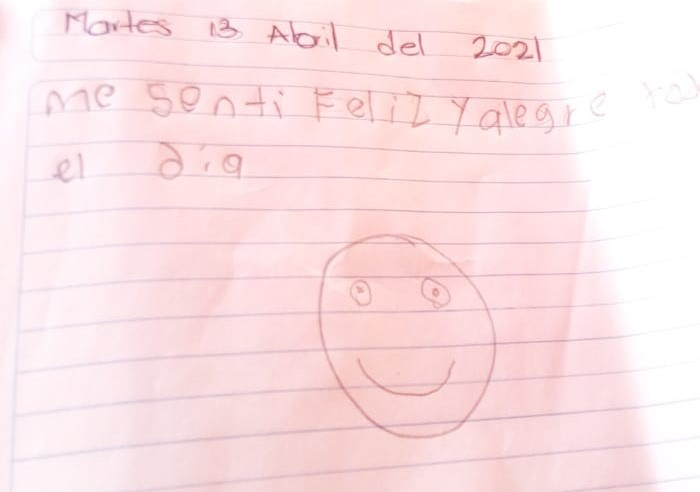 Martes 13 Abril del 2021
me senti Feliz Y alegre
el dia